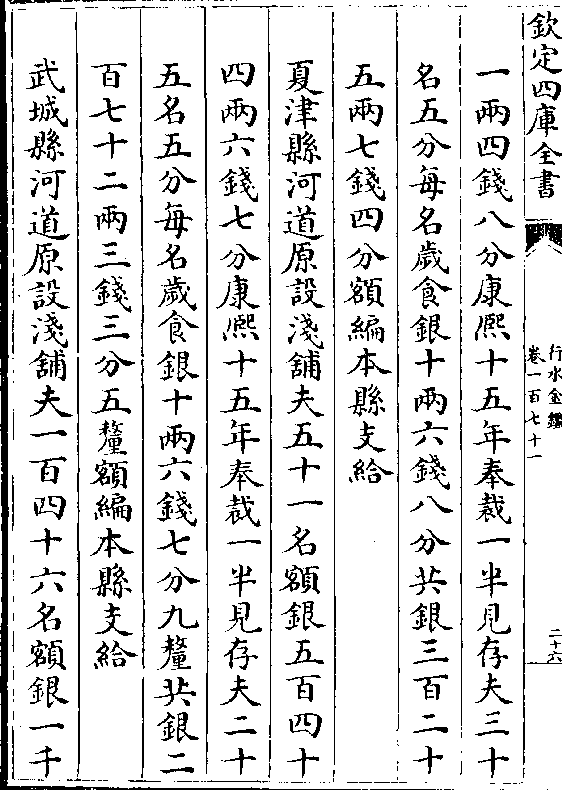 欽定四庫全書
行水金鑑
卷一百七十一
二十六
一兩四錢八分康熙十五年奉裁一半見存夫三十
名五分每名歲食銀十兩六錢八分共銀三百二十
五兩七錢四分額編本縣支給
夏津縣河道原設淺舖夫五十一名額銀五百四十
四兩六錢七分康熙十五年奉裁一半見存夫二十
五名五分每名歲食銀十兩六錢七分九釐共銀二
百七十二兩三錢三分五釐額編本縣支給
武城縣河道原設淺舖夫一百四十六名額銀一千